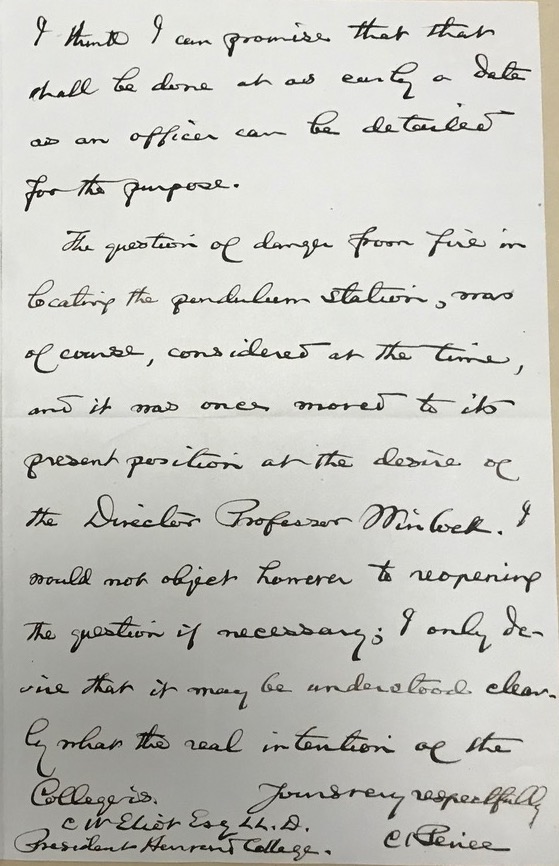 I think I can promise that that
shall be done at as early a date
as an officer can be detailed
for the purpose.
The question of danger from fire in
locating the pendulum station, was
of course, considered at the time,
and it was once moved to its
present position at the desire of
the Director Professor Winlock. I
would not object however to reopening
the question if necessary; I only de-
sire that it may be understood clear-
ly what the real intention of the
College is. Yours very respectfully
C W Eliot Esq LL.D.
President Harvard College. C S Peirce